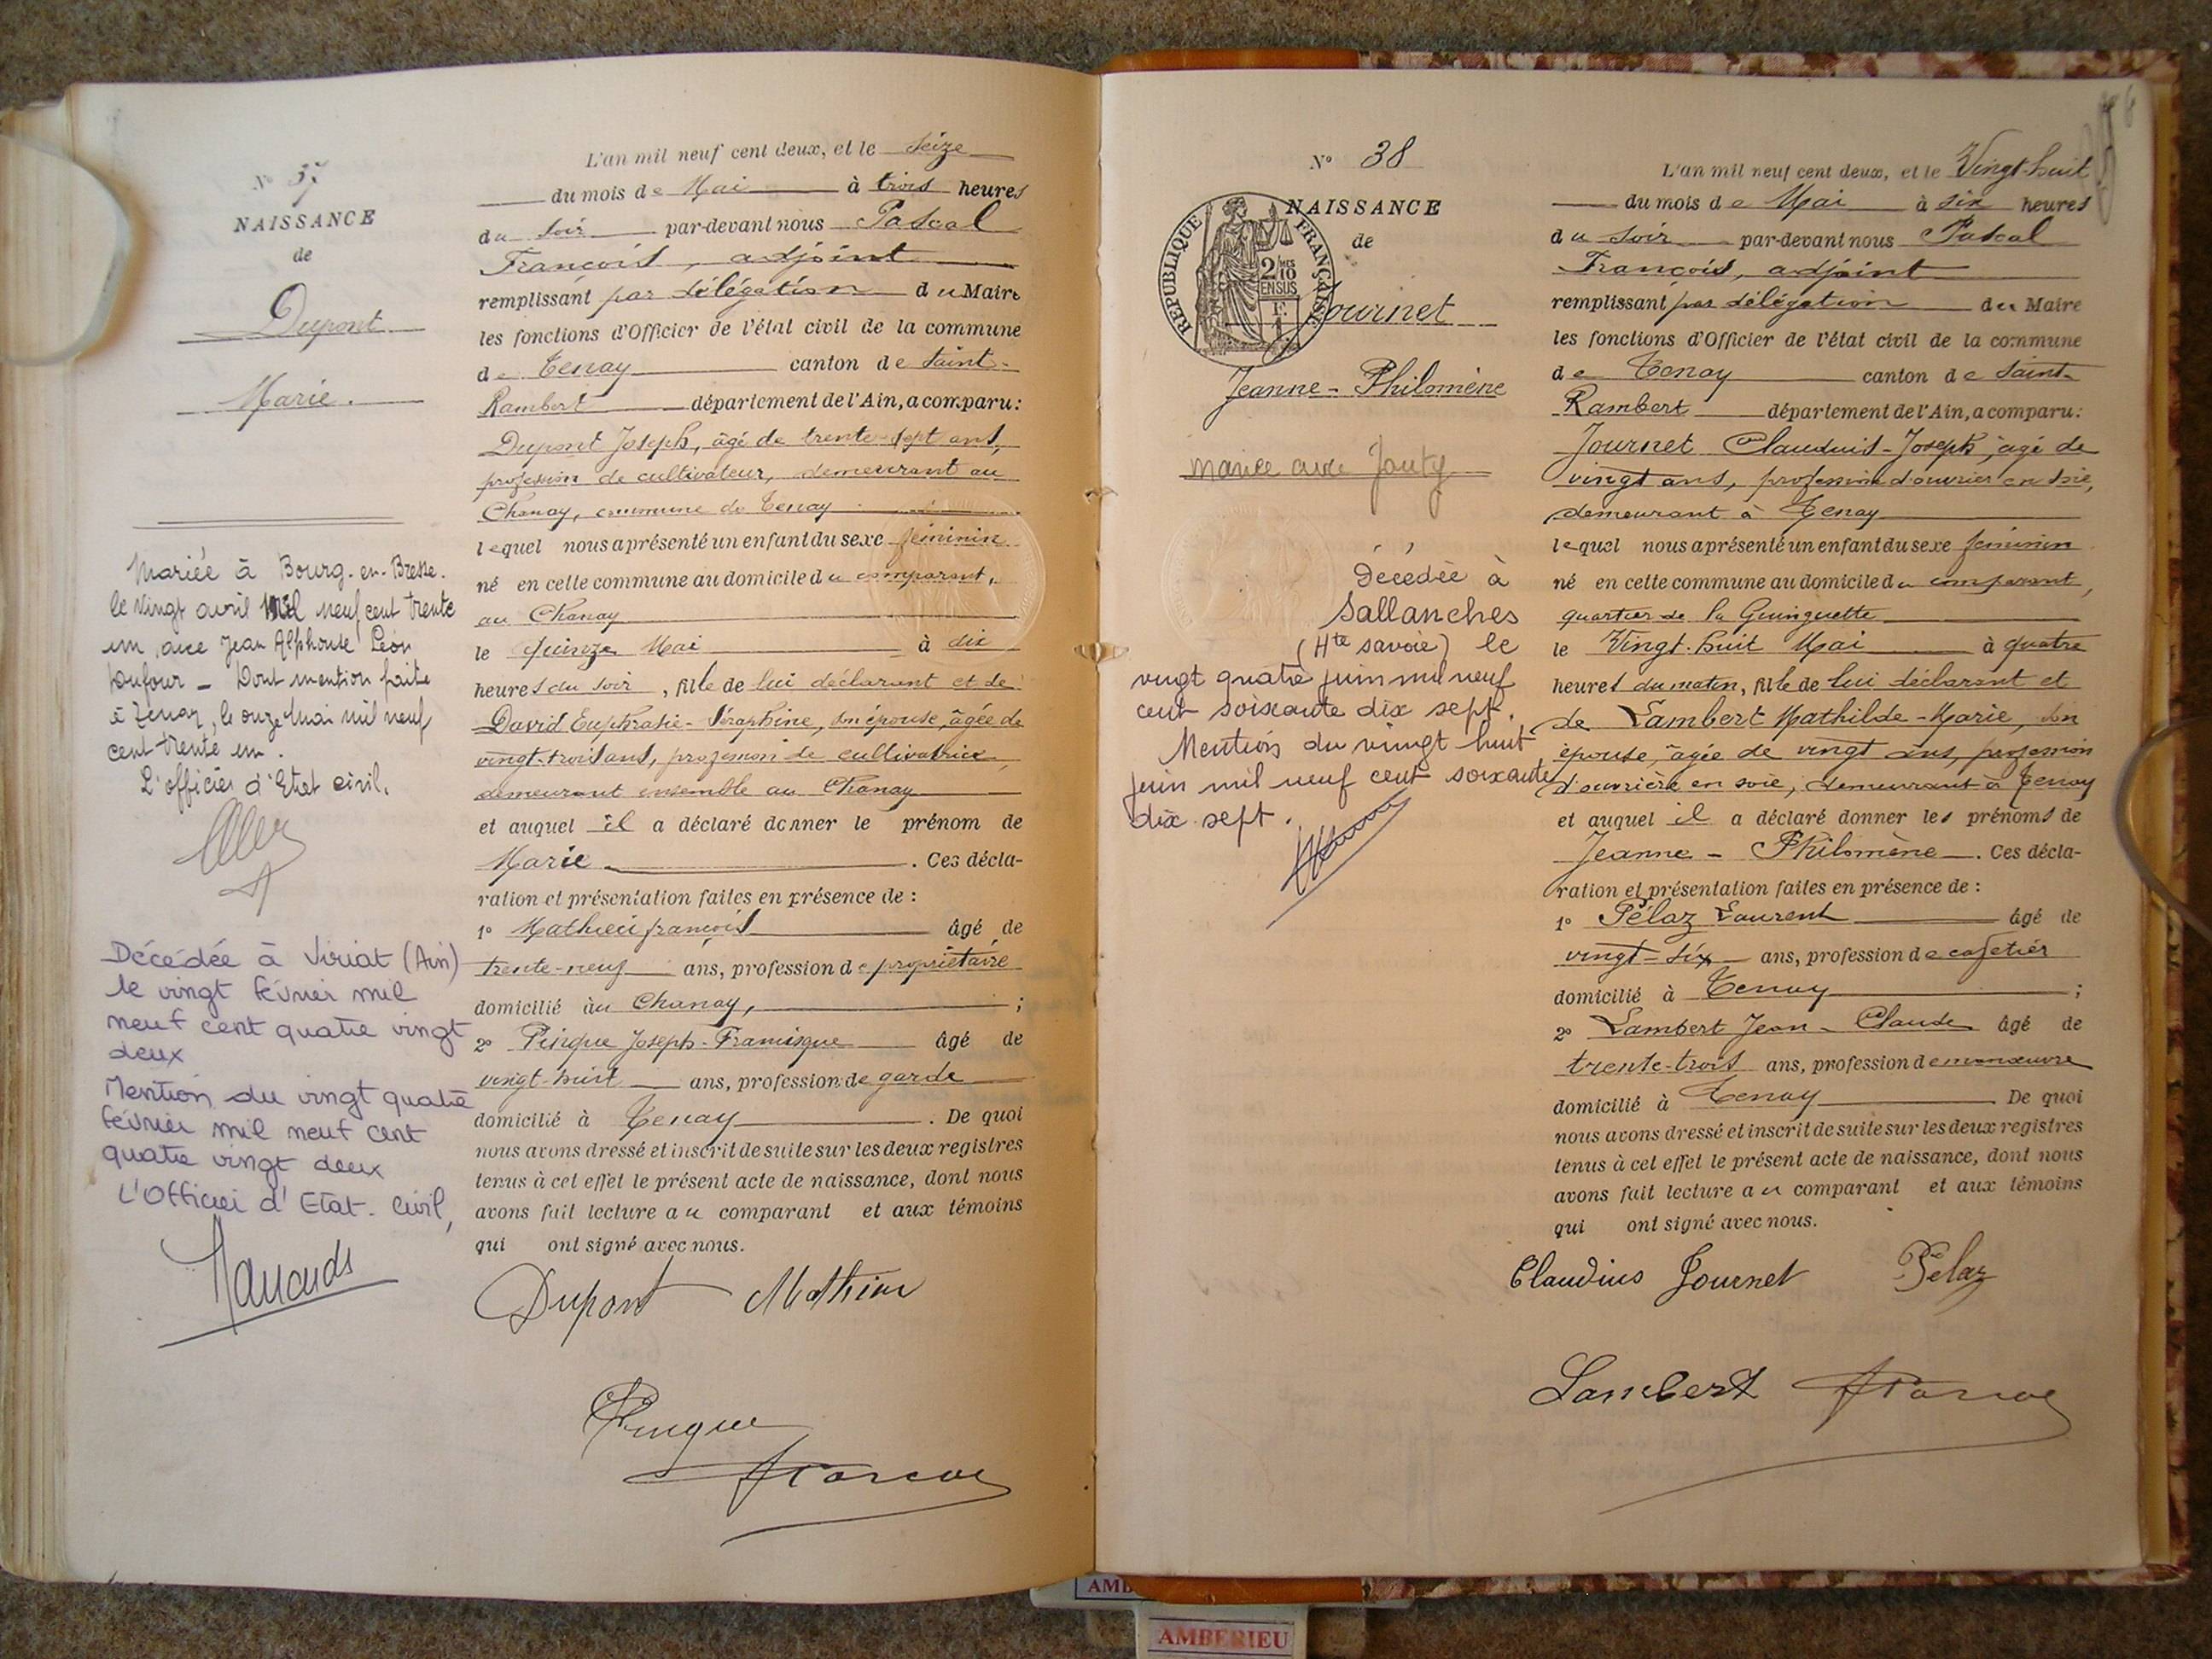 N° 37
NAISSANCE
de
Dupont
Marie.
Mariée à Bourg-en-Bresse.
le vingt avril mil neuf cent trente
un, avec Jean Alphonse Léon
Dufour - Dont mention faite
à Tenay, le onze mai mil neuf
cent trente un.
L'officier d'Etat civil.
Décédée à Viriat (Ain)
le vingt février mil
neuf cent quatre vingt
deux
Mention du vingt quatre
février mil neuf cent
quatre vingt deux
L'Officier d'Etat-Civil,
L'an mil neuf cent deux, et le seize
du mois de Mai à trois heures
du soir par-devant nous Pascal
François, adjoint
remplissant par délégation du Maire
les fonctions d'Officier de l'état civil de la commune
de Tenay canton de Saint-
Rambert département de l'Ain, a comparu:
Dupont Joseph, âgé de trente-sept ans,
profession de cultivateur, demeurant au
Chanay, commune de Tenay
lequel nous a présenté un enfant du sexe féminin
né en cette commune au domicile du comparant,
au Chanay
le quinze Mai à dix
heures du soir, fille de lui déclarant et de
David Euphrasie-Séraphine, son épouse, âgée de
vingt-trois ans, profession de cultivatrice,
demeurant ensemble au Chanay
et auquel il a déclaré donner le prénom de
Marie. Ces décla-
ration et présentation faites en présence de :
1° Mathieu françois âgé de
trente-neuf ans, profession de propriétaire
domicilié au Chanay, ;
2° Pingue Joseph-Francisque âgé de
vingt-huit ans, profession de garde
domicilié à Tenay. De quoi
nous avons dressé et inscrit de suite sur les deux registres
tenus à cet effet le présent acte de naissance, dont nous
avons fait lecture au comparant et aux témoins
qui ont signé avec nous.
Dupont Mathieu
Pingue
Pascal
N° 38
NAISSANCE
de
REPUBLIQUE FRANÇAISE
2/10 MES
EN SUS
Journet
Jeanne-Philomène
mariée avec Jouty
Décédée à
Sallanches
(Hte savoie) le
vingt quatre juin mil neuf
cent soixante dix sept.
Mention du vingt huit
juin mil neuf cent soixante
dix sept.
L'an mil neuf cent deux, et le Vingt-huit
du mois de Mai à six heures
du soir par-devant nous Pascal
François, adjoint
remplissant par délégation du Maire
les fonctions d'Officier de l'état civil de la commune
de Tenay canton de Saint-
Rambert département de l'Ain, a comparu:
Journet Claudius-Joseph, âgé de
vingt ans, profession d'ouvrier en soie,
demeurant à Tenay
lequel nous a présenté un enfant du sexe féminin
né en cette commune au domicile du comparant,
quartier de la Guinguette
le Vingt-huit Mai à quatre
heures du matin, fille de lui déclarant et
de Lambert Mathilde-Marie, son
épouse, âgée de vingt ans, profession
d'ouvrière en soie, demeurant à Tenay
et auquel il a déclaré donner les prénoms de
Jeanne-Philomène. Ces décla-
ration et présentation faites en présence de :
1° Pélaz Laurent âgé de
vingt-six ans, profession de cafetier
domicilié à Tenay ;
2° Lambert Jean-Claude âgé de
trente-trois ans, profession de manœuvre
domicilié à Tenay. De quoi
nous avons dressé et inscrit de suite sur les deux registres
tenus à cet effet le présent acte de naissance, dont nous
avons fait lecture au comparant et aux témoins
qui ont signé avec nous.
Claudius Journet Pélaz
Lambert Pascal
AMBERIEU